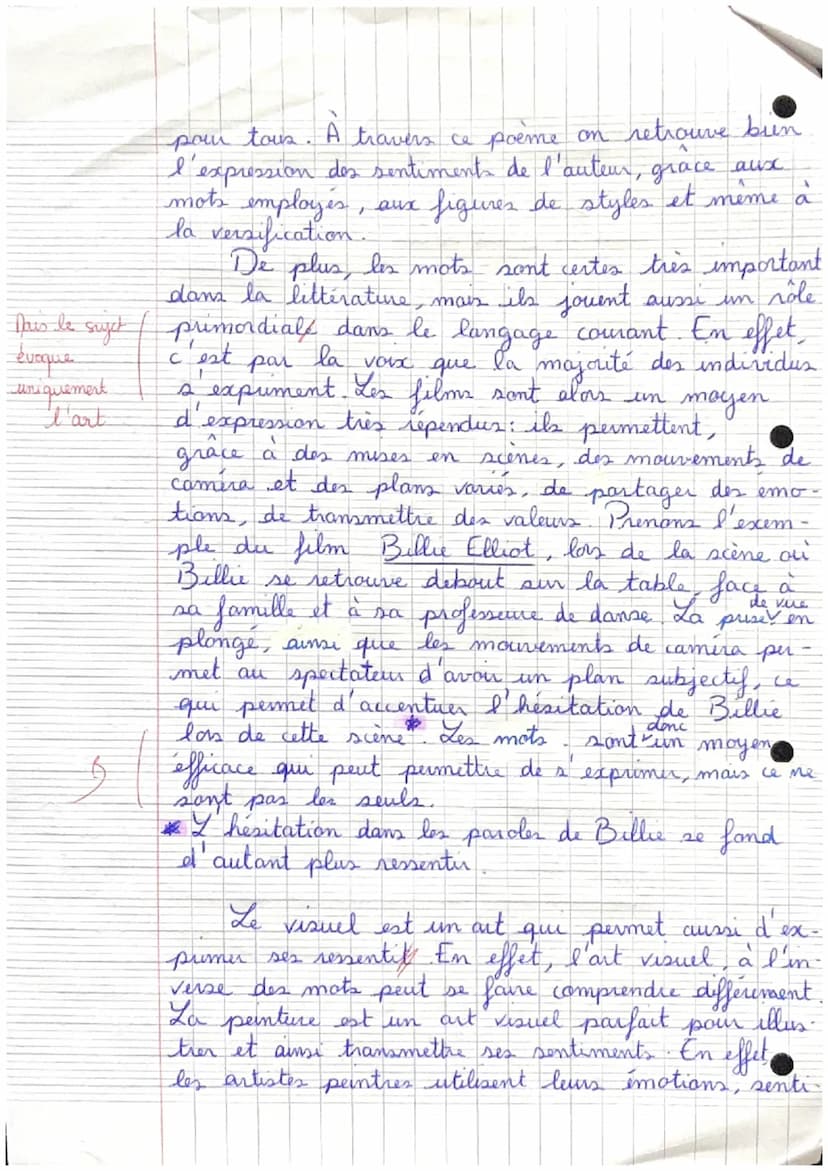 pour tous. À travers ce poème on retrouve bien
l'expression des sentiments de l'auteur, grâce aux
mots employés, aux figures de styles et même à
la versification.
De plus, les mots sont certes très important
dans la littérature, mais ils jouent aussi un rôle
Mais le sujet
évoque
uniquement
l'art
primordial dans le langage courant. En effet,
c'est par la voix que la majorité des individus
s'expriment. Les films sont alors un moyen
d'expression très répendus: ils permettent,
grâce à des mises en scènes, des mouvements de
caméra et des plans variés, de partager des émo-
tions, de transmettre des valeurs. Prenons l'exem-
ple du film Billie Elliot, lors de la scène où
Billie se retrouve debout sur la table, face à
sa famille et à sa professeure de danse. La prise de vue en
plongé, ainsi que les mouvements de caméra per-
met au spectateur d'avoir un plan subjectif, ce
qui permet d'accentuer l'hésitation de Billie
lors de cette scène*. Les mots sont donc un moyen
éfficace qui peut permettre de s'exprimer, mais ce ne
sont pas les seuls.
* L'hésitation dans les paroles de Billie se fond
d'autant plus ressentir.
Le visuel est un art qui permet aussi d'ex-
primer ses ressentis. En effet, l'art visuel, à l'in-
verse des mots peut se faire comprendre différement.
La peinture est un art visuel parfait pour illus-
trer et ainsi transmettre ses sentiments. En effet,
les artistes peintres utilisent leurs émotions, senti-